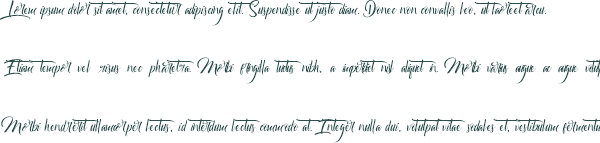 Lorem ipsum dolor sit amet, consectetur adipiscing elit. Suspendisse ut justo diam. Donec non convallis leo, ut laoreet arcu.
Etiam tempor vel risus nec pharetra. Morbi fringilla luctus nibh, a imperdiet nisl aliquet in. Morbi varius augue ac augue volutpat
Morbi hendrerit ullamcorper lectus, id interdum lectus commodo at. Integer nulla dui, volutpat vitae sodales et, vestibulum fermentu